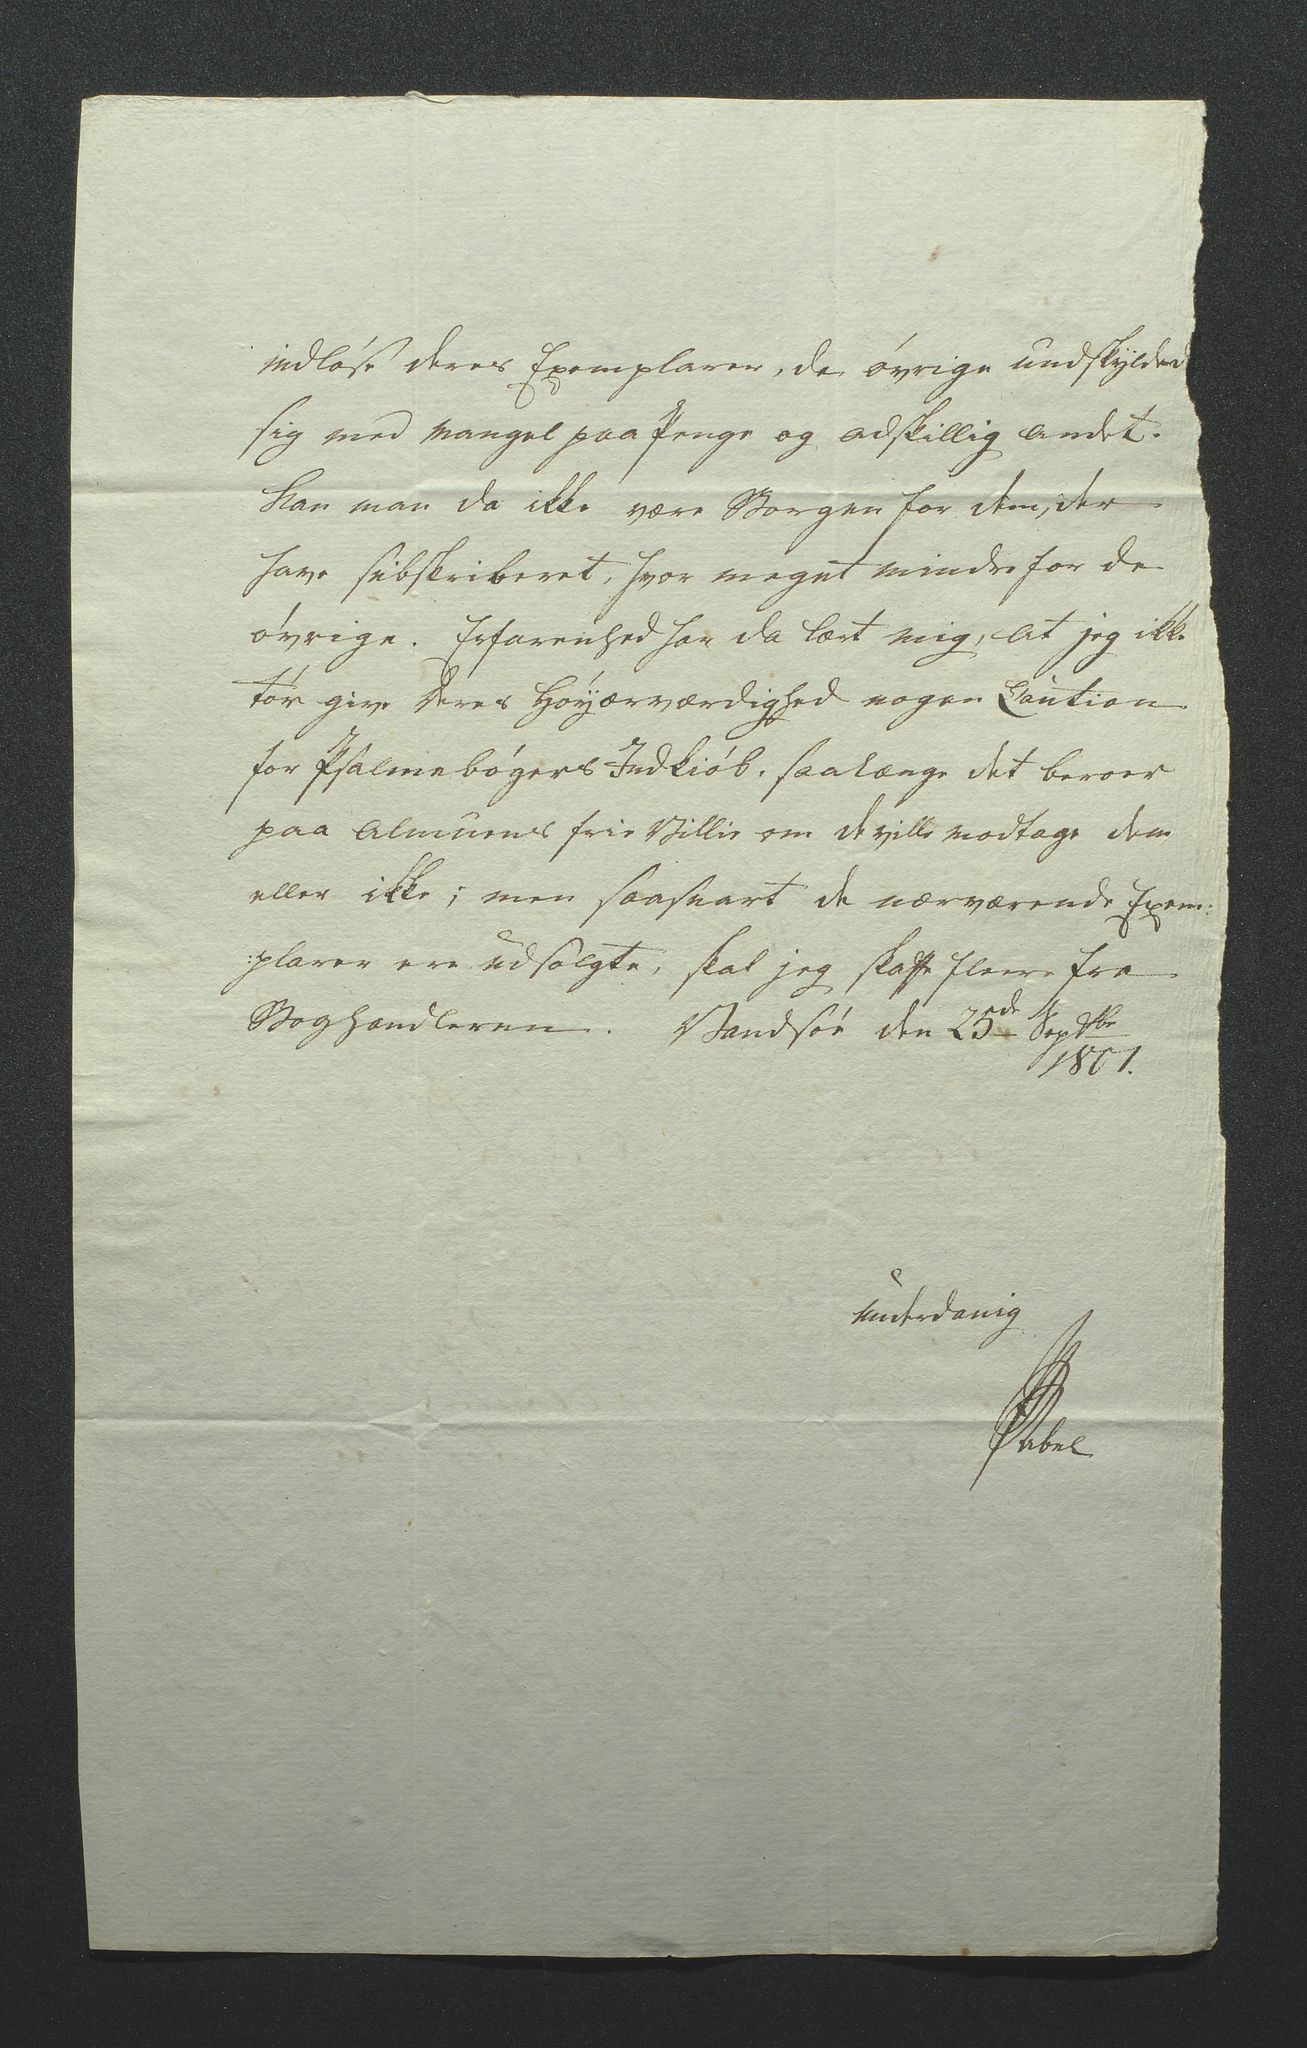 indløse deres Exemplarer, de øvrige undskylded
sig med Mangel paa Penge og adskillig andet.
Kan man da ikke være Borgen for dem, der
have subskriberet, hvor meget mindre for de
øvrige. Erfarenhed har da lært mig, at jeg ikke
tør give Deres Høyærværdighed nogen Caution
for Psalmebøgers Indkiøb, saalænge det beroer
paa Almuens frie Villie om de ville modtage dem
eller ikke; men saasnart de nærværende Exem:
:plarer ere udsolgte, skal jeg skaffe fleere fra
Boghandleren. Vandsøe den 25de Septbr
1801.
underdanig
Pabel